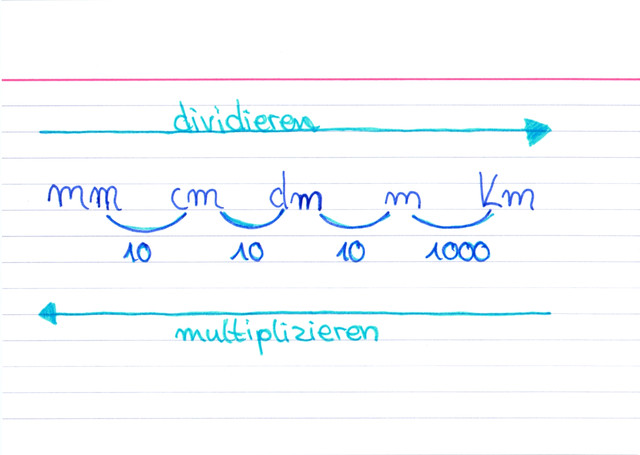 dividieren
mm cm dm m Km
10 10 10 1000
multiplizieren